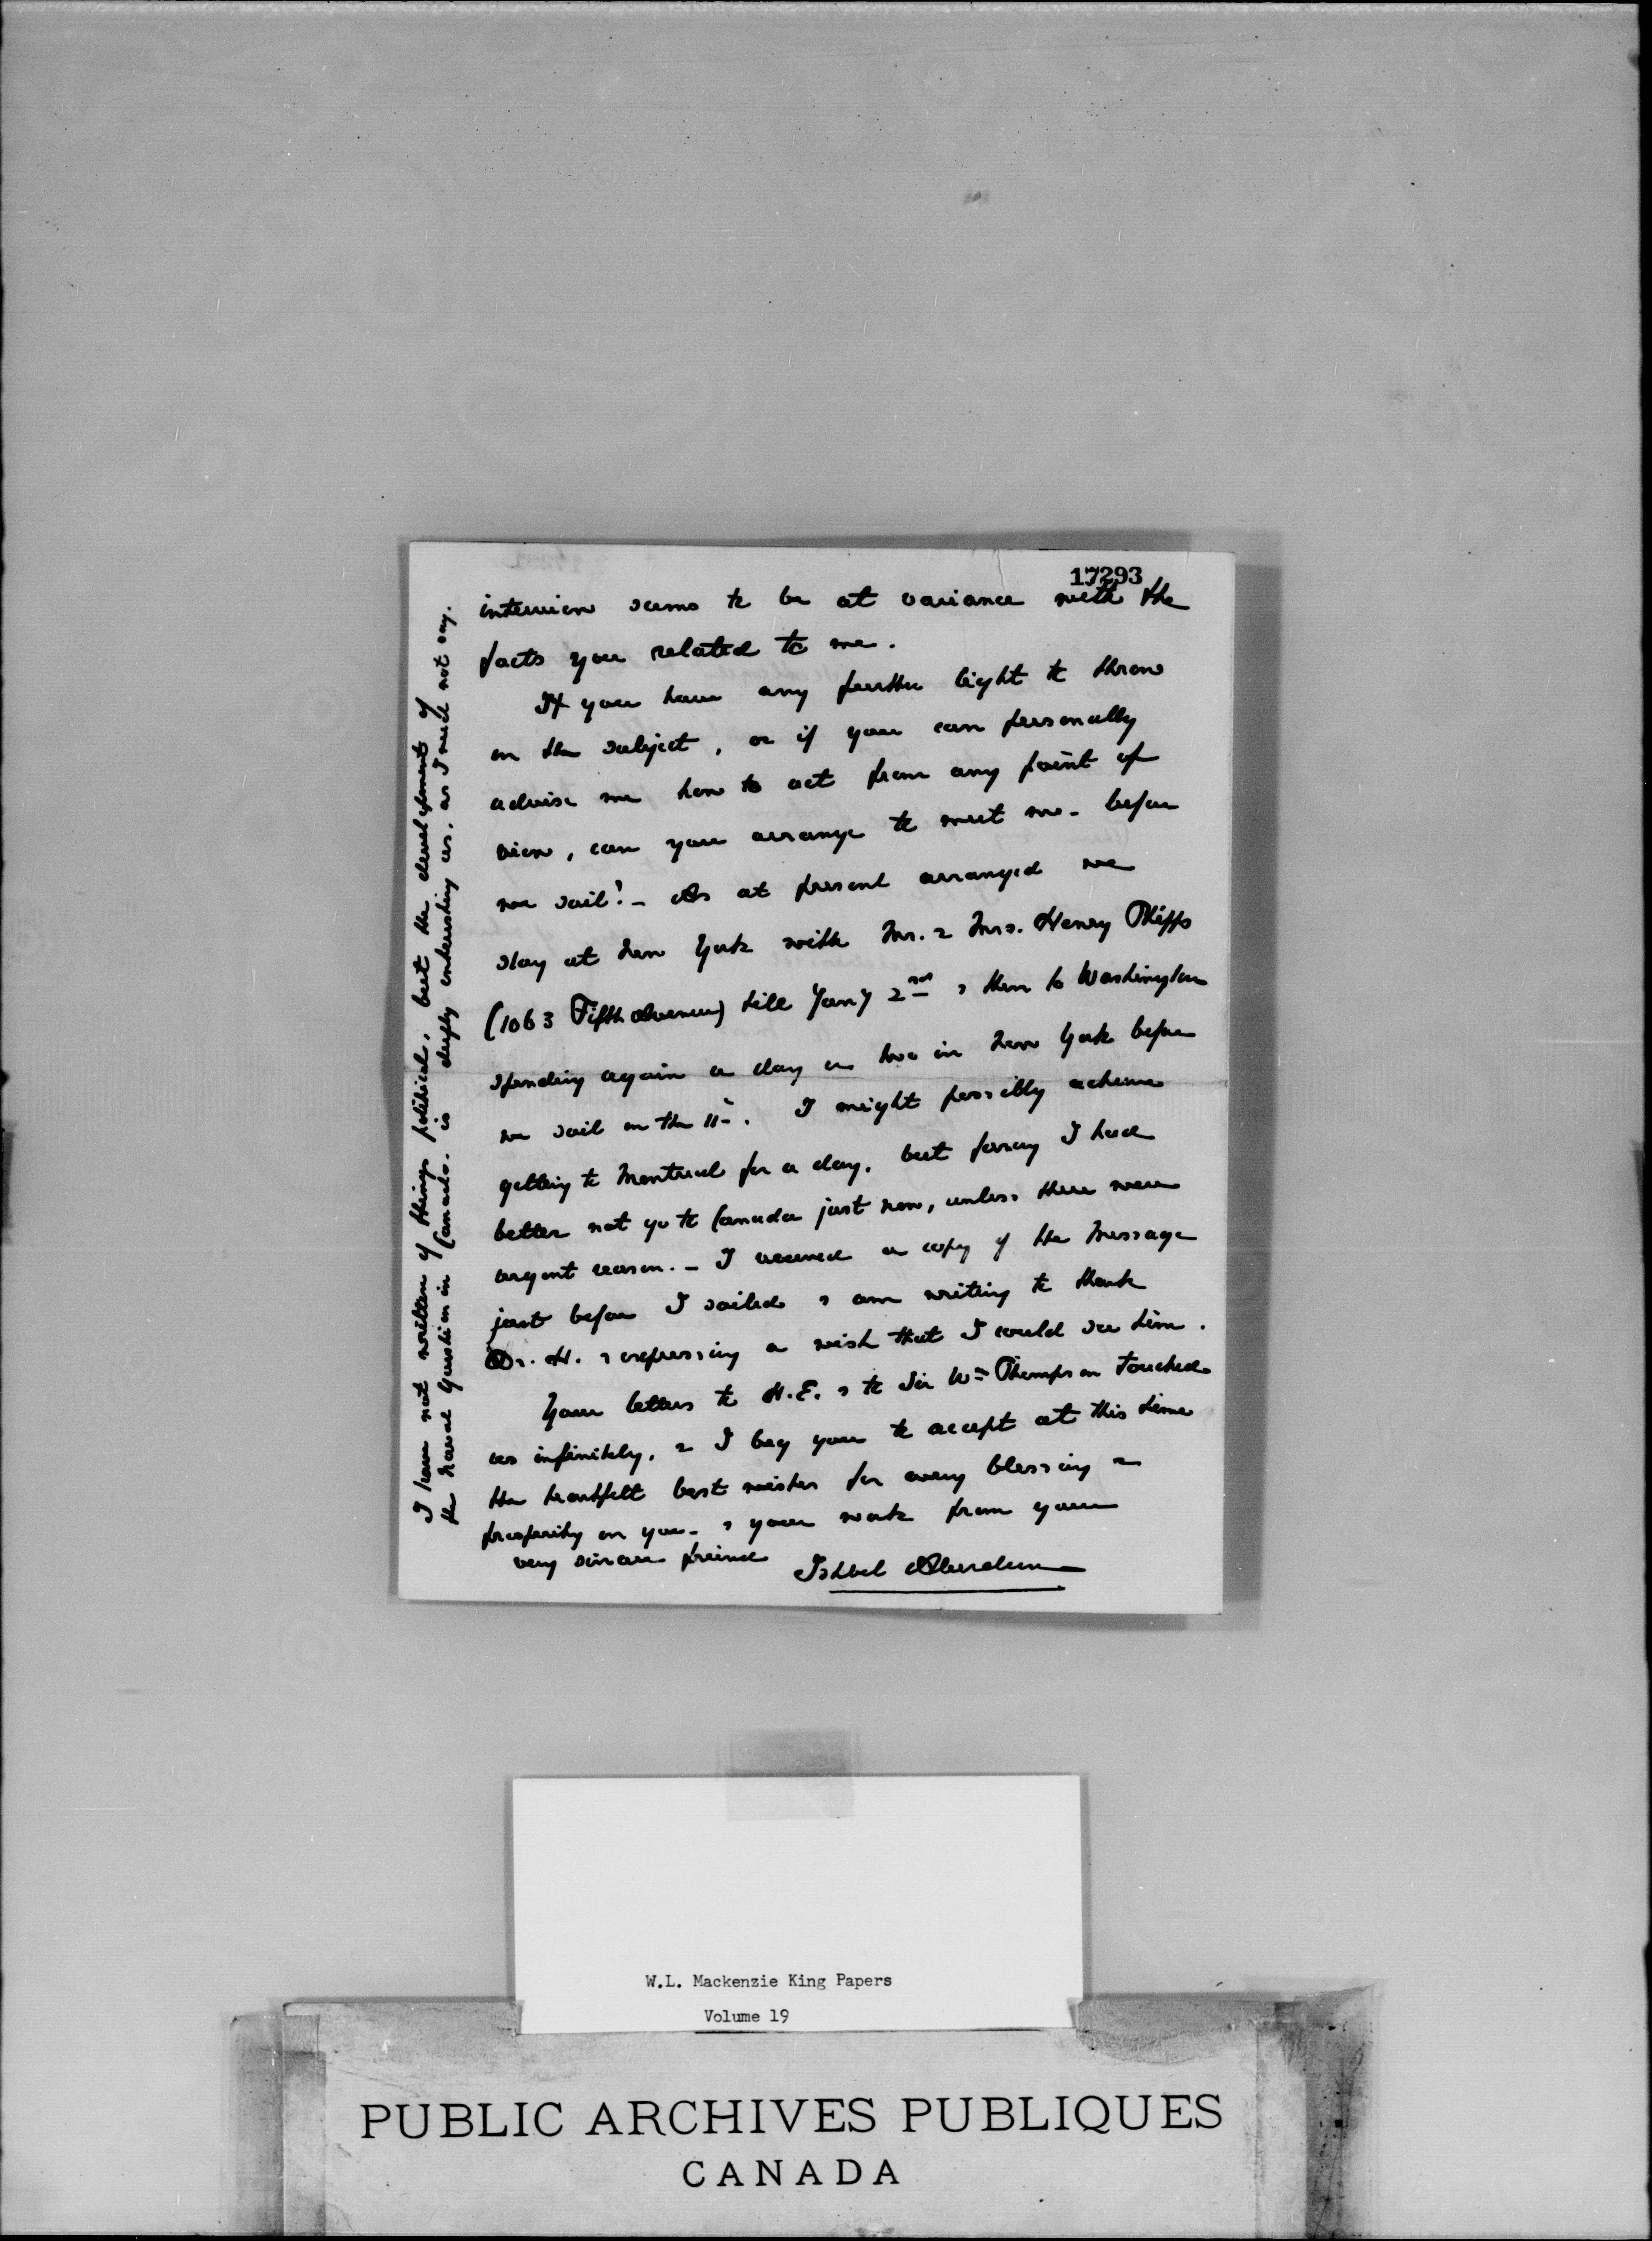 17293
interview seems to be at variance with the
facts you related to me.
If you have any further light to throw
on the subject, or if you can personally
advise me how to act from any point of
view, can you arrange to meet me - before
we sail? - As at present arranged we
stay at New York with Mr. & Mrs. Henry Phipps
(1063 Fifth Avenue) till Jany 2nd & then to Washington
spending again a day or two in New York before
we sail on the 11th. I might possibly achieve
getting to Montreal for a day, but fancy I had
better not go to Canada just now, unless there were
urgent reason. - I received a copy of the Message
just before I sailed & am writing to thank
Dr. H. & expressing a wish that I could see him.
Your letters to H.E. & to Sir Wm Thompson touched
us infinitely, & I beg you to accept at this time
the heartfelt best wishes for every blessing &
prosperity on you - & your work from your
very sincere freind
Ishbel Aberdeen
I have not written of things political, but the development of
the Naval Question in Canada is deeply interesting us, as I need not say.
W.L. Mackenzie King Papers
Volume 19
PUBLIC ARCHIVES PUBLIQUES
CANADA